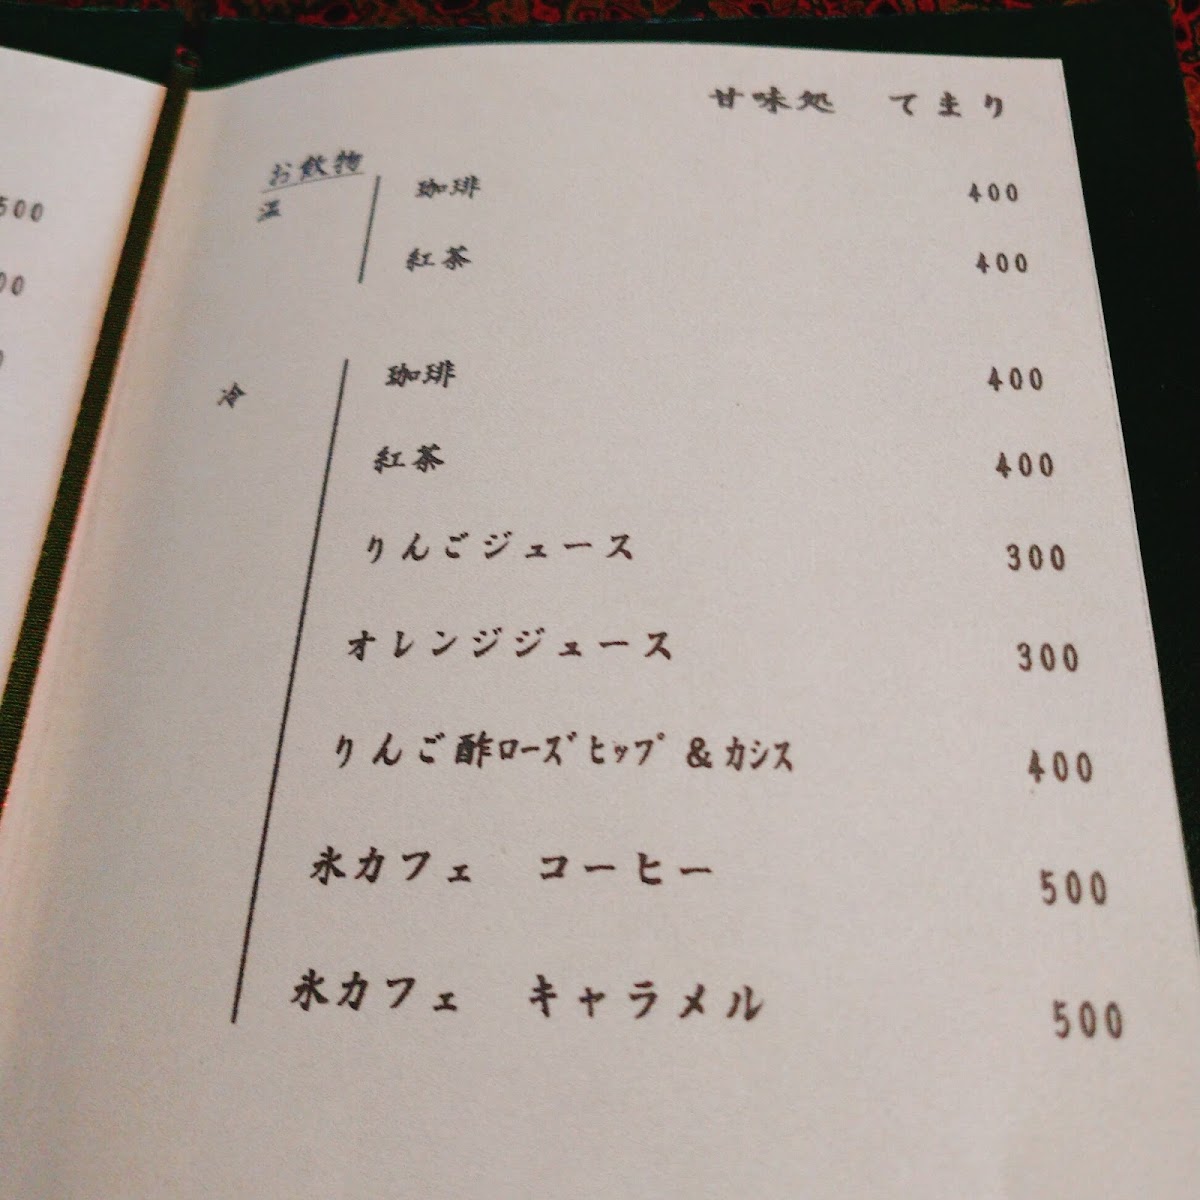 甘味処 てまり
お飲物
温
珈琲 400
紅茶 400
冷
珈琲 400
紅茶 400
りんごジュース 300
オレンジジュース 300
りんご酢ﾛｰｽﾞﾋｯﾌﾟ＆ｶｼｽ 400
氷カフェ コーヒー 500
氷カフェ キャラメル 500
500